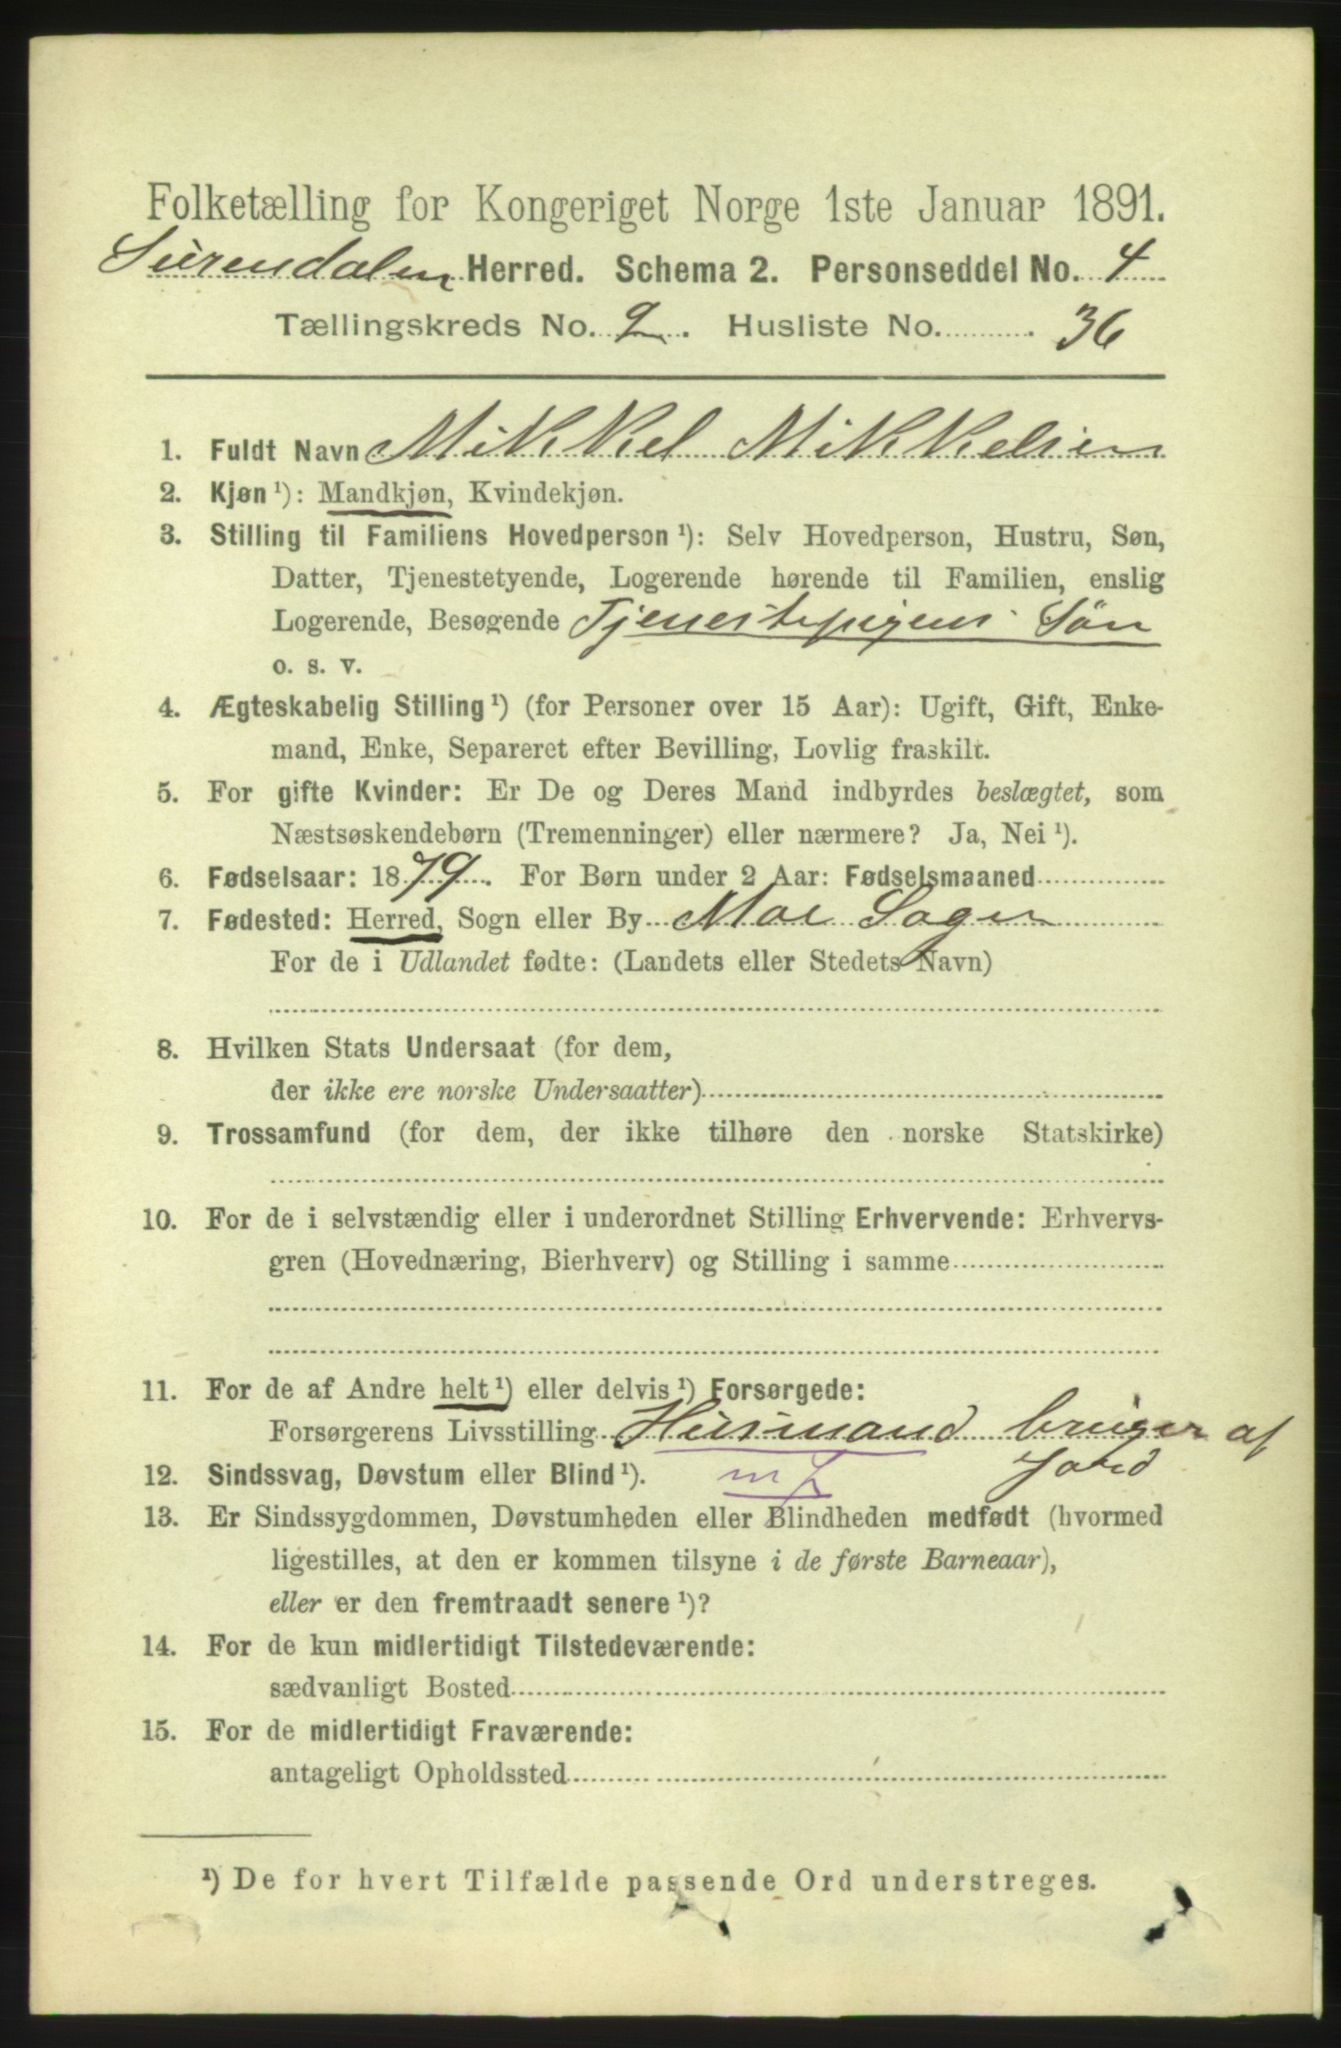 Folketælling for Kongeriget Norge 1ste Januar 1891.
Surendalen Herred. Schema 2. Personseddel No. 4
Tællingskreds No. 2. Husliste No. 36
1. Fuldt Navn Mikkel Mikkelsen
2. Kjøn ¹): Mandkjøn, Kvindekjøn.
3. Stilling til Familiens Hovedperson ¹): Selv Hovedperson, Hustru, Søn,
Datter, Tjenestetyende, Logerende hørende til Familien, enslig
Logerende, Besøgende Tjenestepigens Søn
o. s. v.
4. Ægteskabelig Stilling ¹) (for Personer over 15 Aar): Ugift, Gift, Enke-
mand, Enke, Separeret efter Bevilling, Lovlig fraskilt.
5. For gifte Kvinder: Er De og Deres Mand indbyrdes beslægtet, som
Næstsøskendebørn (Tremenninger) eller nærmere? Ja, Nei ¹).
6. Fødselsaar: 1879. For Børn under 2 Aar: Fødselsmaaned
7. Fødested: Herred, Sogn eller By Moe Sogn
For de i Udlandet fødte: (Landets eller Stedets Navn)
8. Hvilken Stats Undersaat (for dem,
der ikke ere norske Undersaatter)
9. Trossamfund (for dem, der ikke tilhøre den norske Statskirke)
10. For de i selvstændig eller i underordnet Stilling Erhvervende: Erhvervs-
gren (Hovednæring, Bierhverv) og Stilling i samme
11. For de af Andre helt ¹) eller delvis ¹) Forsørgede:
Forsørgerens Livsstilling Husmand bruger af
Jord
12. Sindssvag, Døvstum eller Blind ¹).
13. Er Sindssygdommen, Døvstumheden eller Blindheden medfødt (hvormed
ligestilles, at den er kommen tilsyne i de første Barneaar),
eller er den fremtraadt senere ¹)?
14. For de kun midlertidigt Tilstedeværende:
sædvanligt Bosted
15. For de midlertidigt Fraværende:
antageligt Opholdssted
¹) De for hvert Tilfælde passende Ord understreges.